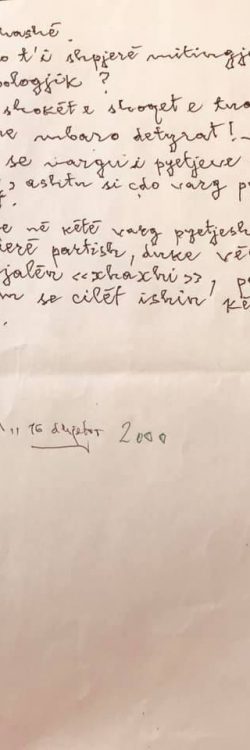 hashé.
o t'i shpjerë mitingje
ologjik ?
shokët e shoqet e tu
e mbaro detyrat!
se vargu i pyetjeve
, ashtu si çdo varg p
e në këtë varg pyetjesh
ierë partish, duke vë
jalën «xhaxhi», p
m se cilët ishin kë
, 16 dhjetor 2000